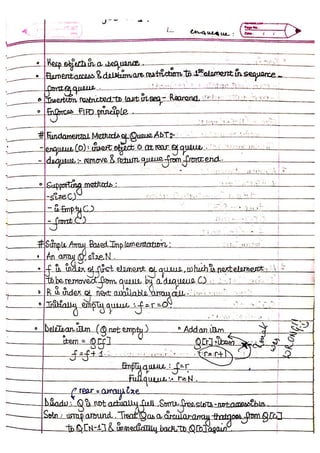 enqueue:
• Keep objects in a sequence.
• Element access & deletion are restriction to 1st element in sequence -
front of queue.
• Insertion restricted to last in seq - Rearend.
• Enforces FIFO principle.
# Fundamental Methods of Queue ADT:-
- enqueue (O): insert object O at rear of queue.
- dequeue :- remove & return queue from front end.
• Supporting methods:
- size()
- isEmpty()
- front()
# Simple Array Based Implementation:
• An array Q, size N.
• f is index of first element of queue, which is next element
to be removed from queue by a dequeue ()
• R is index of next available array cell.
• Initially empty queue : f = r = 0.
• Delete an item (Q not empty)
item = Q[f]
f = f + 1
• Add an item
Q[r] = item
r = r + 1
WRONG!!
Empty queue : f = r
Full queue :- r = N.
rear = array size
Issue: Q is not actually full. Some free slots - not accessible
Soln: wrap around. Treat Q as a circular array that goes from Q[0]
to Q[N-1] & immediately back to Q[0] again.